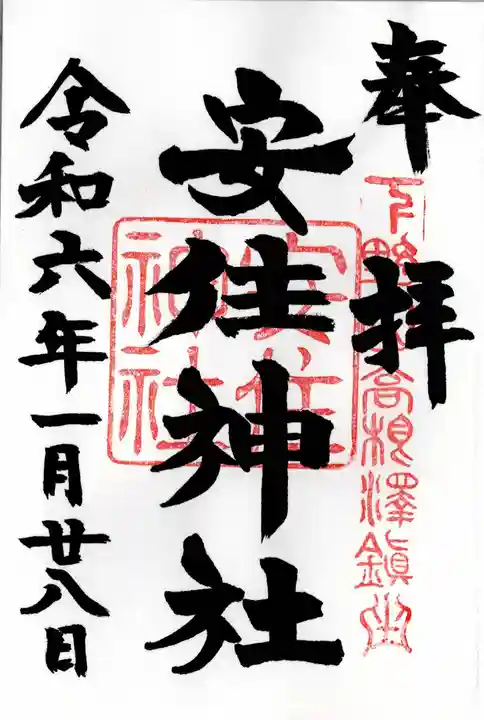 奉拝
下野 高根澤鎮座
安住神社
安住神社
令和六年一月廿八日